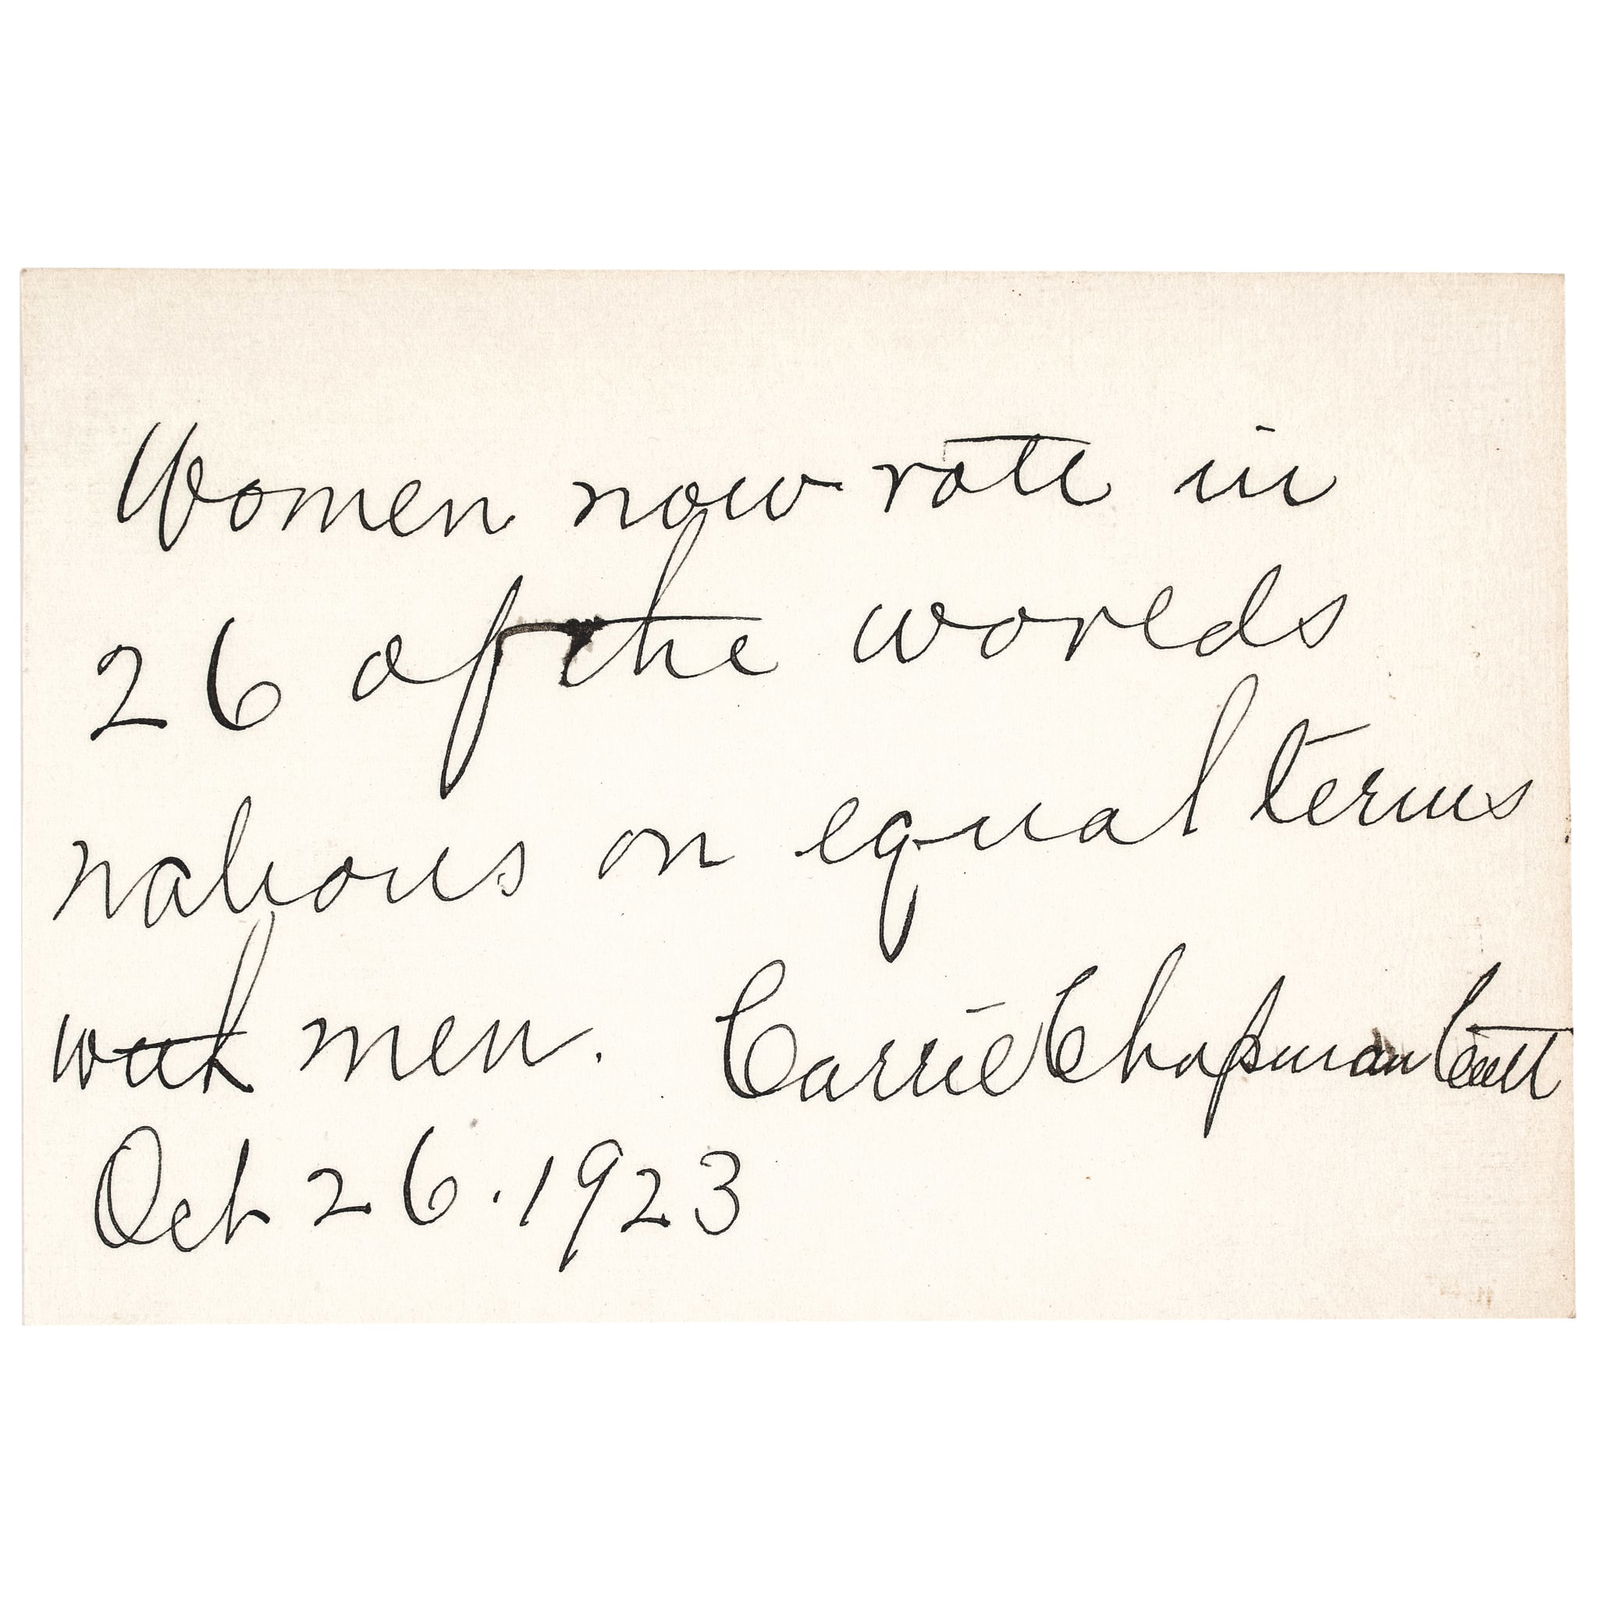 Women now vote in
26 of the worlds
nations on equal terms
with men. Carrie Chapman Catt
Oct 26. 1923